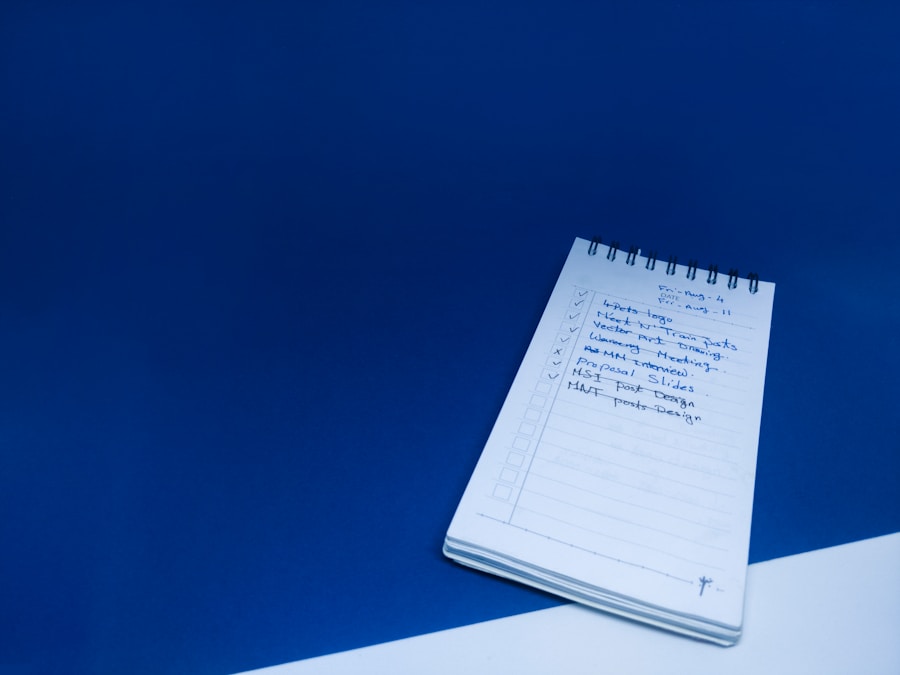 Fri - Aug - 4
DATE
Fri - Aug - 11
4Pets logo
Meet 'N' Train posts
Vector Art Drawing.
Meeting.
MM Interview.
Proposal Slides.
MSI post Design
MNT posts Design